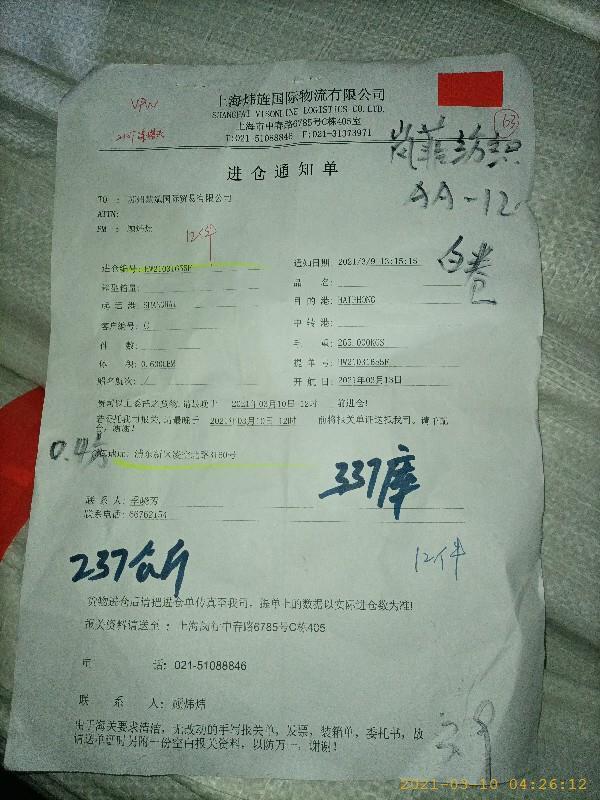 上海炜旌国际物流有限公司
SHANGHAI VISONLINE LOGISTICS CO.LTD.
上海市中春路6785号C栋405室
T:021-51088846 F:021-31373971
63
AA-12
白卷
进仓通知单
TO : 国际贸易有限公司
ATTN:
FM : 顾炜炜
12件
进仓编号: HW21031655F
通知日期: 2021/3/9 13:15:15
箱型箱量:
品 名:
起运港: SHANGHAI
目的港: HAIPHONG
客户编号:
中转港:
件 数:
毛 重: 265.000KGS
体 积: 0.600CBM
提单号: HW21031655F
船名航次: /
开航日: 2021年03月13日
请将以上委托之货物,请最晚于 2021年03月10日-12时 前进仓!
若委托我司报关,请最晚于 2021年03月10日-12时 前将报关单证送抵我司。请予配
合,谢谢!
0.4方
浦东新区凌空北路3180号
337库
联系人:
联系电话: 66762154
237公斤
12件
货物进仓后请把进仓单传真至我司, 提单上的数据以实际进仓数为准!
报关资料请送至 : 上海闵行中春路6785号C栋405
电 话: 021-51088846
联 系 人: 顾炜炜
由于海关要求清洁, 无改动的手写报关单, 发票, 装箱单, 委托书, 故
请送单证时另附一份空白报关资料, 以防万一, 谢谢!
2021-03-10 04:26:12